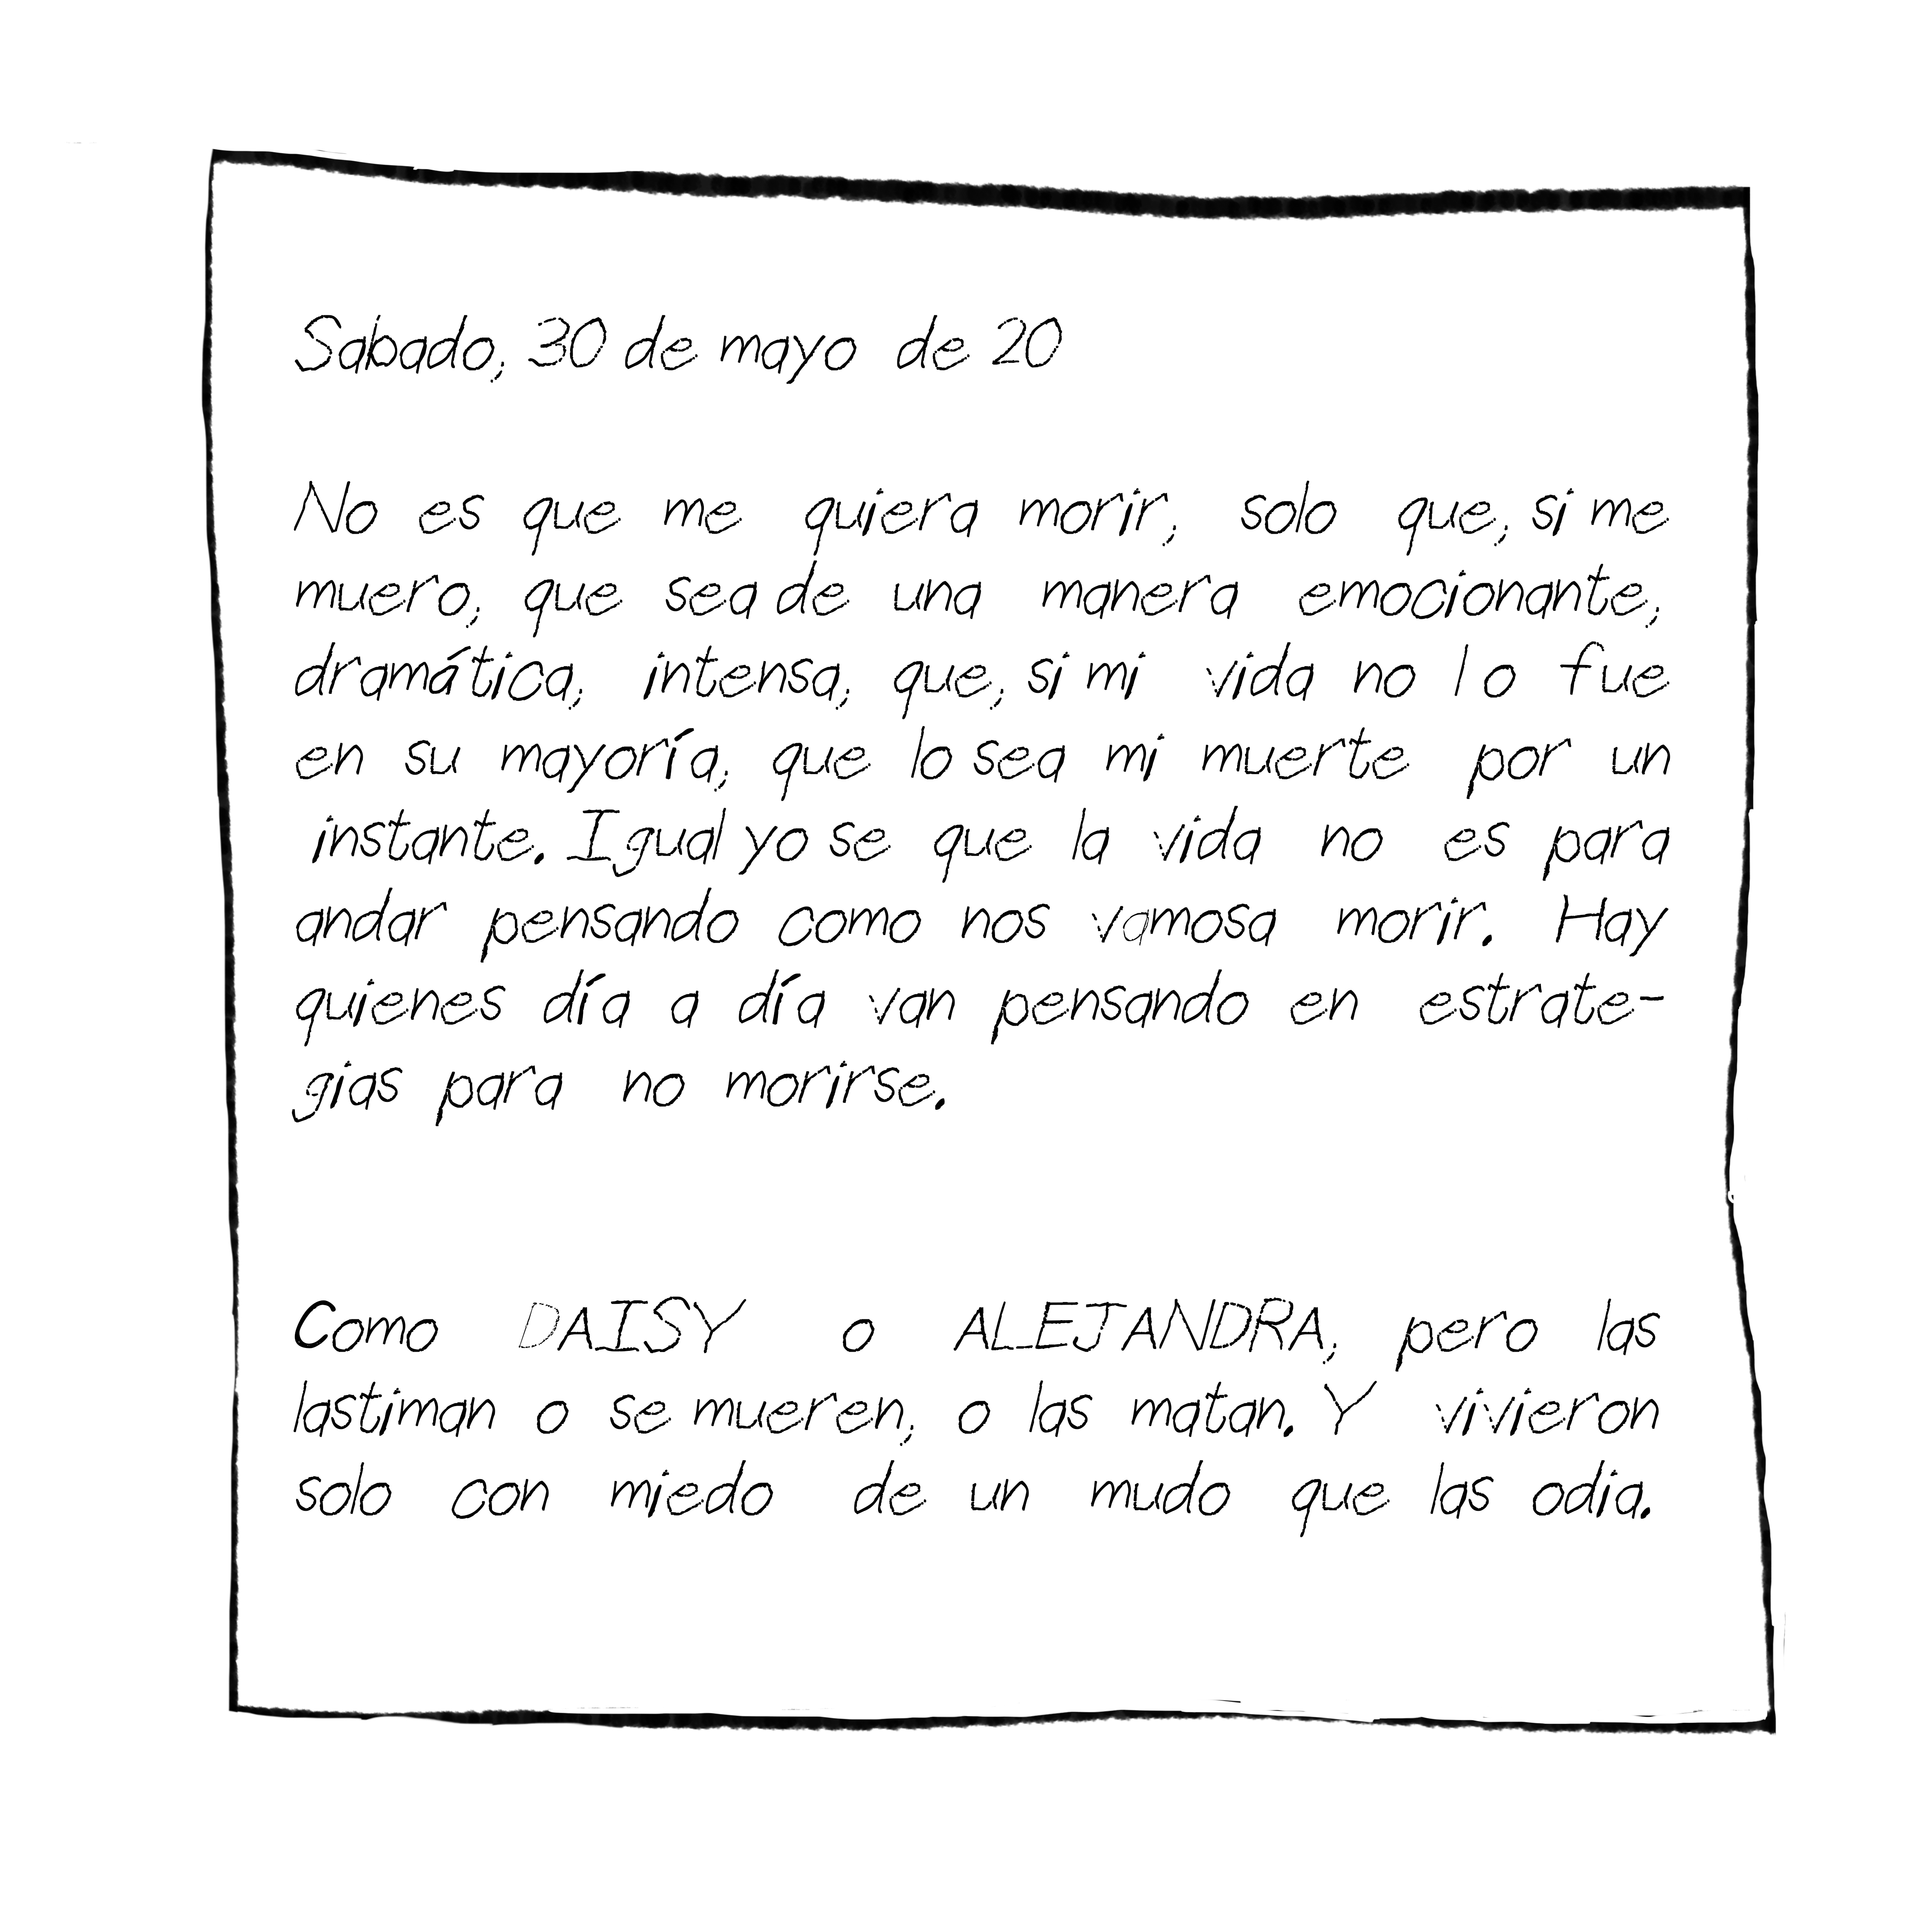 Sabado, 30 de mayo de 20
No es que me quiera morir, solo que, si me
muero, que sea de una manera emocionante,
dramática, intensa, que, si mi vida no lo fue
en su mayoría, que lo sea mi muerte por un
instante. Igual yo se que la vida no es para
andar pensando como nos vamosa morir. Hay
quienes día a día van pensando en estrate-
gias para no morirse.
Como DAISY o ALEJANDRA, pero las
lastiman o se mueren, o las matan. Y vivieron
solo con miedo de un mudo que las odia.